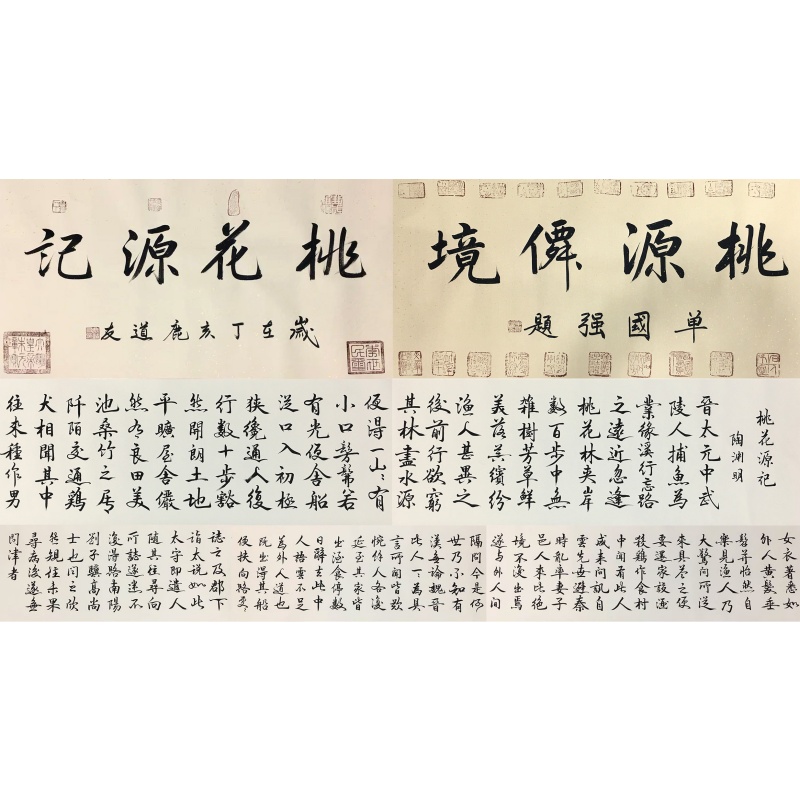 桃源僊境
单國强題
桃花源記
歲在丁亥鹿道友
桃花源记
陶渊明
晉太元中武
陵人捕魚為
業缘溪行忘路
之遠近忽逢
桃花林夹岸
數百步中無
雜樹芳草鮮
美落英繽纷
漁人甚異之
後前行欲窮
其林盡水源
便得一山〻有
小口髣髴若
有光便舍船
從口入初極
狭纔通人後
行數十步豁
然開朗土地
平曠屋舍儼
然有良田美
池桑竹之属
阡陌交通鷄
犬相聞其中
往来種作男
女衣著悉如
外人黄髮垂
髫并怡然自
樂見漁人乃
大驚问所從
来具答之便
要還家設酒
殺鷄作食村
中闻有此人
咸来问訊自
雲先世避秦
時亂率妻子
邑人來此绝
境不復出焉
遂与外人间
隔问今是何
世乃不知有
漢無論魏晉
此人一一為具
言所闻皆歎
惋餘人各復
延至其家皆
出酒食停數
日辭去此中
人語雲不足
為外人道也
既出得其船
便扶向路處
誌之及郡下
詣太説如此
太守即遣人
随其往尋向
所誌遂迷不
復得路南陽
劉子驥高尚
士也闻之欣
然規往未果
尋病後遂無
问津者